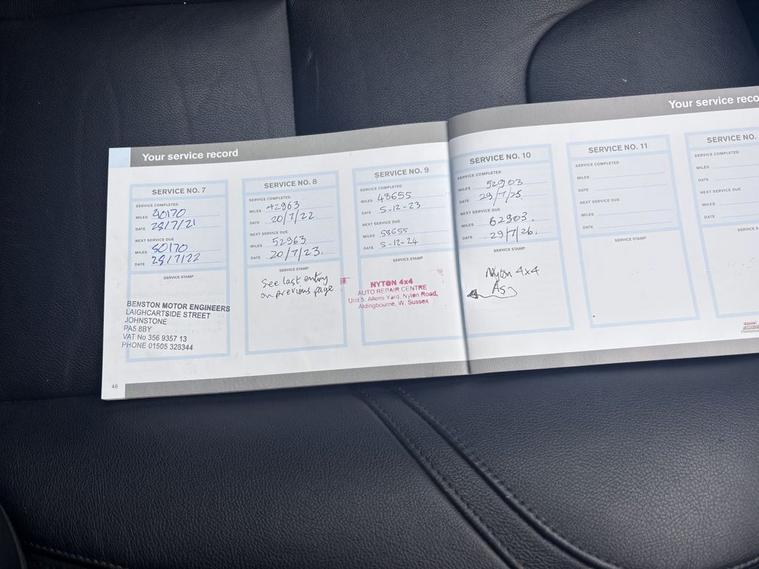 Your service record
Your service reco
SERVICE NO. 7
SERVICE COMPLETED
MILES 40170
DATE 28/7/21
NEXT SERVICE DUE
MILES 50170
DATE 28/7/22
SERVICE STAMP
BENSTON MOTOR ENGINEERS
LAIGHCARTSIDE STREET
JOHNSTONE
PA5 8BY
VAT No 356 9357 13
PHONE 01505 328344
SERVICE NO. 8
SERVICE COMPLETED
MILES 42963
DATE 20/7/22
NEXT SERVICE DUE
MILES 52963
DATE 20/7/23.
SERVICE STAMP
See last entry
on previous page
SERVICE NO. 9
SERVICE COMPLETED
MILES 48655
DATE 5-12-23
NEXT SERVICE DUE
MILES 58655
DATE 5-12-24
SERVICE STAMP
NYTON 4x4
AUTO REPAIR CENTRE
Unit 5, Allens Yard, Nyton Road,
Aldingbourne, W. Sussex
SERVICE NO. 10
SERVICE COMPLETED
MILES 52903
DATE 29/7/25
NEXT SERVICE DUE
MILES 62903.
DATE 29/7/26.
SERVICE STAMP
Nyton 4x4
SERVICE NO. 11
SERVICE COMPLETED
MILES
DATE
NEXT SERVICE DUE
MILES
DATE
SERVICE STAMP
SERVICE NO.
SERVICE COMPLETED
MILES
DATE
NEXT SERVICE DUE
MILES
DATE
46